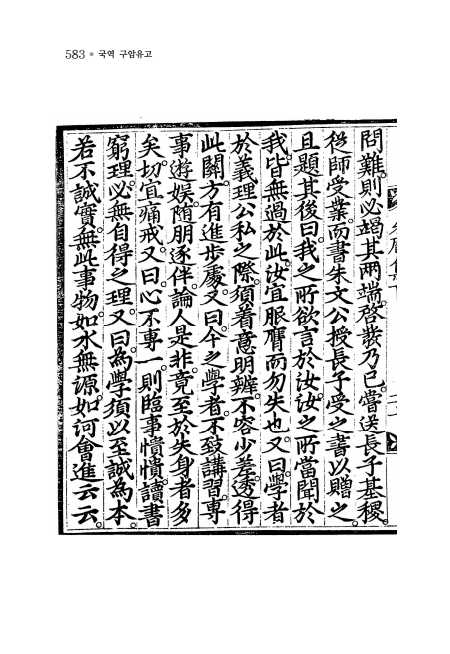 583 • 국역 구암유고
問難。則必竭其兩端。啓發乃已。嘗送長子基稷。
從師受業。而書朱文公授長子受之書以贈之。
且題其後曰。我之所欲言於汝。汝之所當聞於
我。皆無過於此。汝宜服膺而勿失也。又曰。學者
於義理公私之際。須着意明辨。不容少差。透得
此關。方有進步處。又曰。今之學者。不致講習。專
事遊娛。随朋逐伴。論人是非。竟至於失身者多
矣。切宜痛戒。又曰。心不專一。則臨事憒憒。讀書
窮理。必無自得之理。又曰。爲學須以至誠爲本。
若不誠實。無此事物。如水無源。如何會進云云。